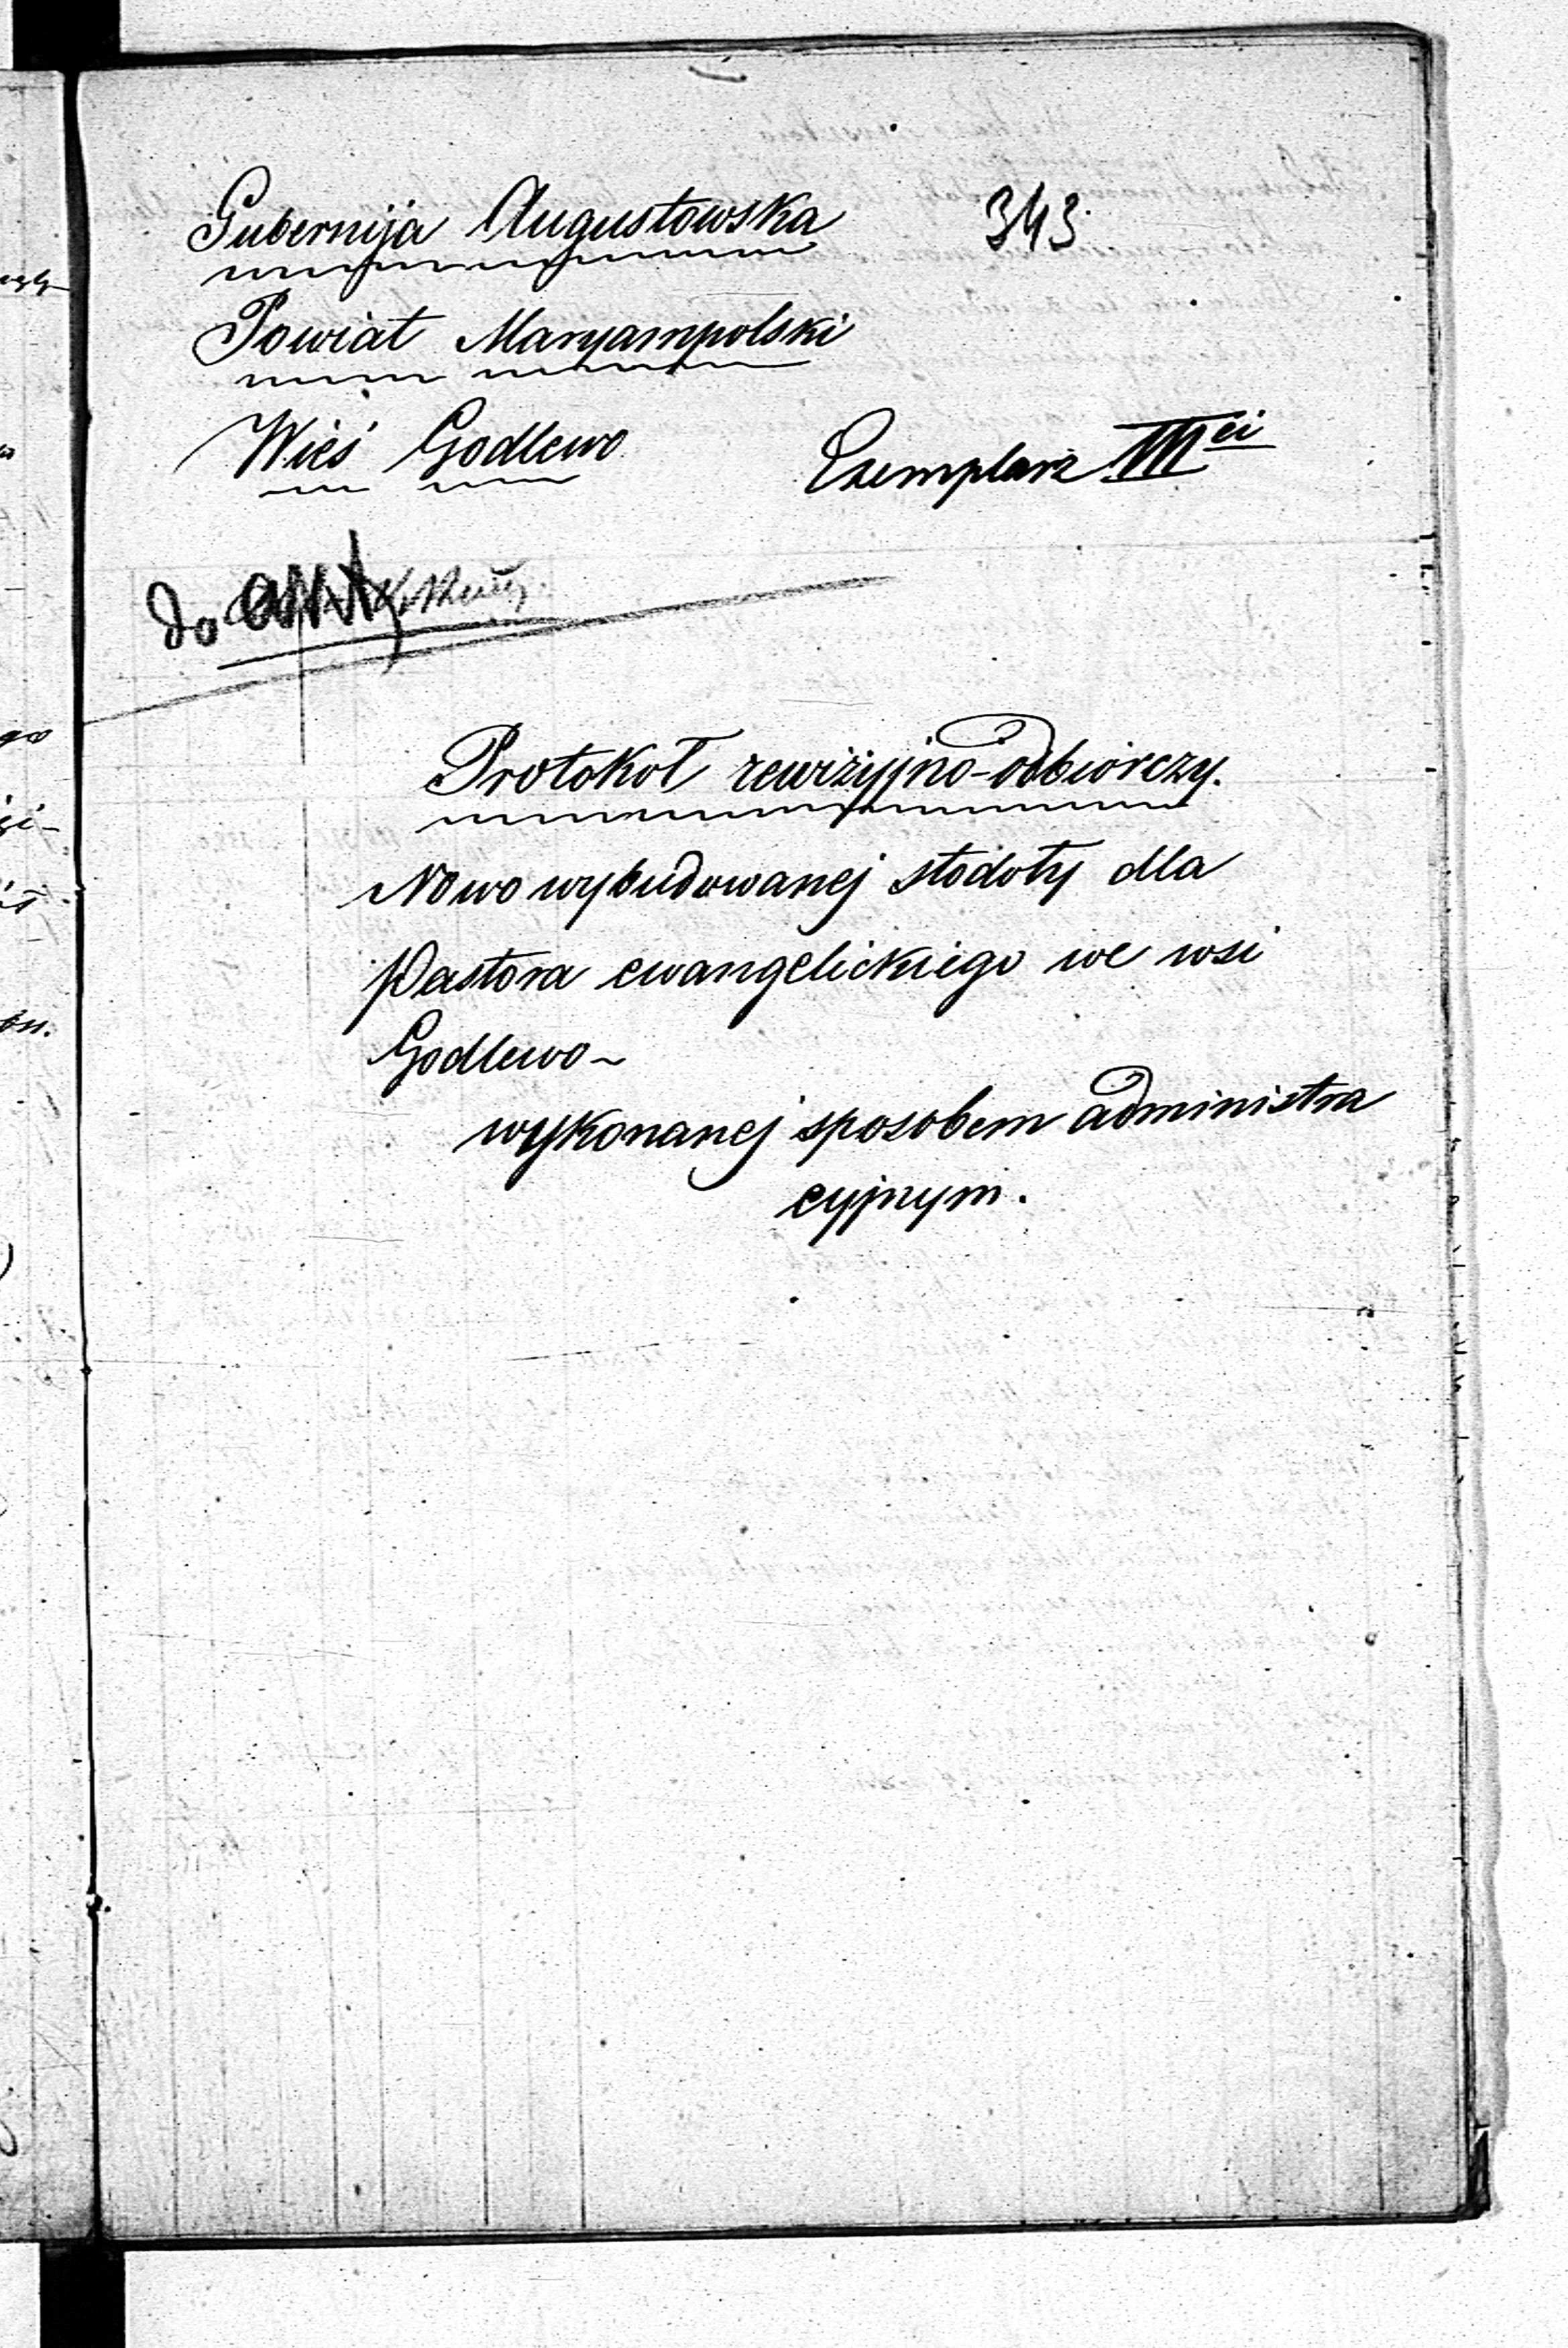 Gubernija Augustowska 343.
Powiat Maryampolski
Wieś Godlewo
Exemplarz III ci
do
Protokół rewizyjno-odbiorczy.
Nowo wybudowanej stodoły dla
Pastora ewangelickiego we wsi
Godlewo~
wykonanej sposobem administra
cyjnym.